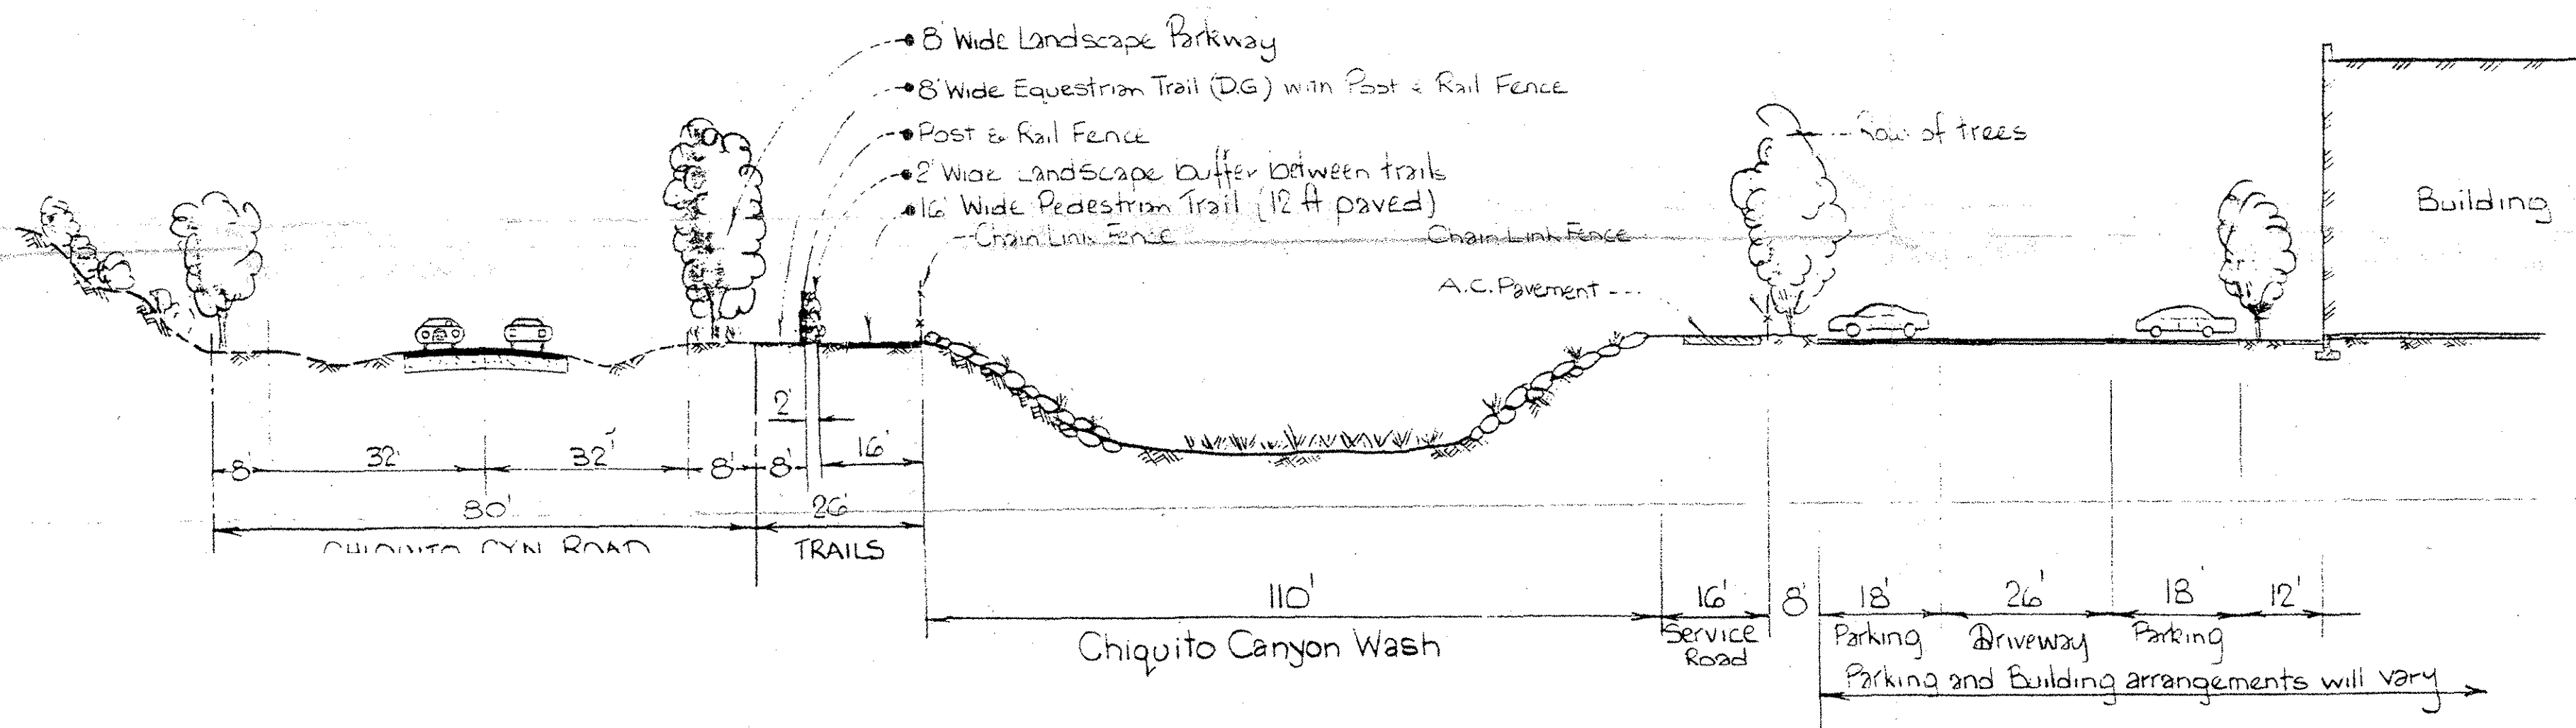 8' Wide Landscape Parkway
8' Wide Equestrian Trail (D.G) with Post & Rail Fence
Post & Rail Fence
2' Wide Landscape buffer between trails
16' Wide Pedestrian Trail (12 ft paved)
Chain Link Fence
Chain Link Fence
A.C. Pavement
Row of trees
Building
2'
8' 32' 32' 8' 8' 16'
80' 26'
CHIQUITO CYN ROAD TRAILS
110' 16' 8' 18' 26' 18 12'
Chiquito Canyon Wash
Service Road
Parking Driveway Parking
Parking and Building arrangements will vary